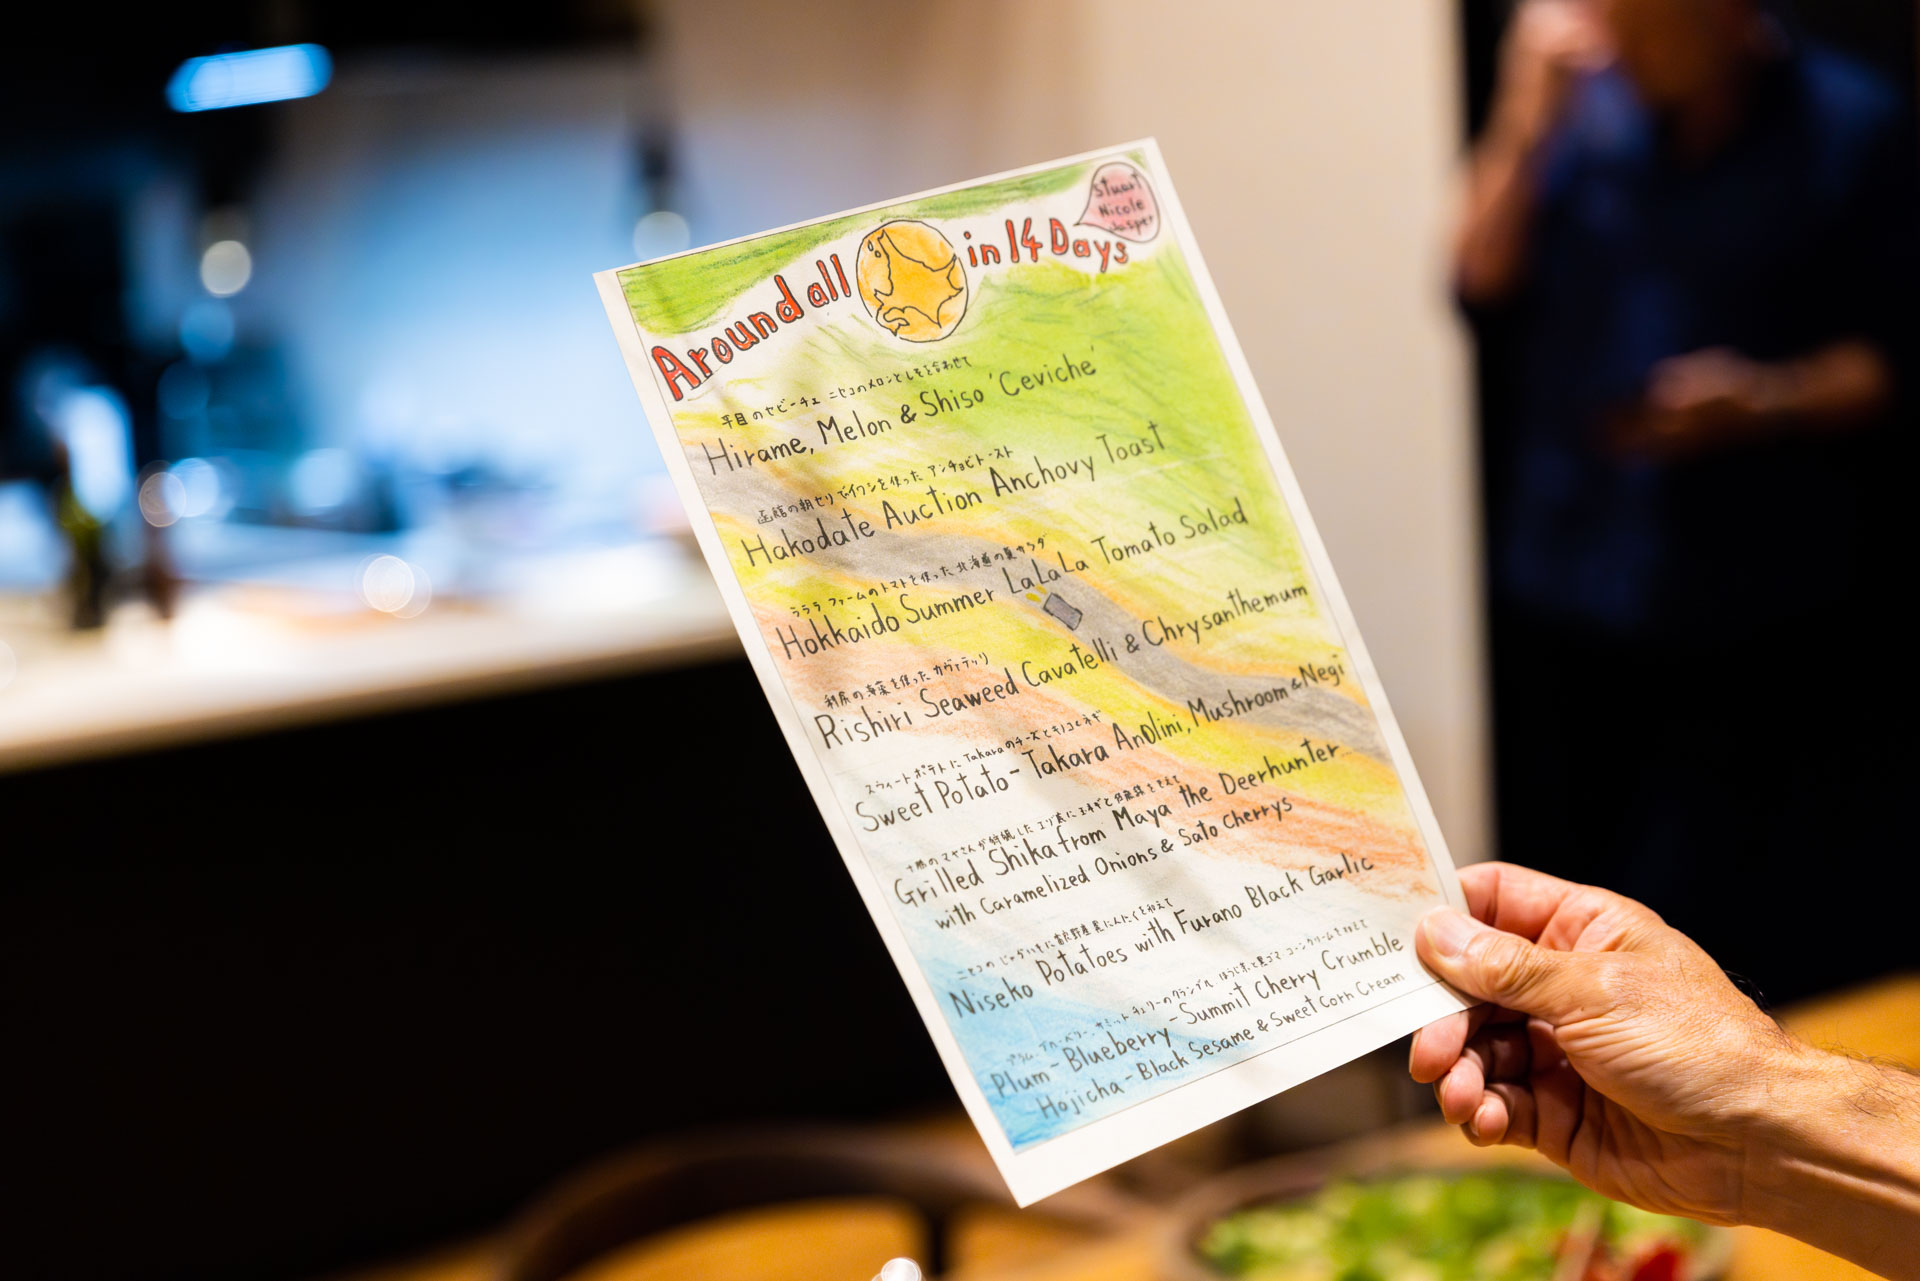 Stuart
Nicole
Jasper
Around all in 14 Days
平目のセビーチェ ニセコのメロンとしそと合わせて
Hirame, Melon & Shiso 'Ceviche'
函館の朝セリでイワシを使った アンチョビトースト
Hakodate Auction Anchovy Toast
ラララファームのトマトを使った 北海道の夏サラダ
Hokkaido Summer LaLaLa Tomato Salad
利尻の海藻を使った カヴァテッリ
Rishiri Seaweed Cavatelli & Chrysanthemum
スウィートポテトに Takaraのチーズとキノコとネギ
Sweet Potato - Takara Anolini, Mushroom & Negi
十勝のマヤさんが狩猟した エゾ鹿に玉ネギと佐藤錦をそえて
Grilled Shika from Maya the Deerhunter...
with Caramelized Onions & Sato Cherrys
ニセコの じゃがいもに富良野産黒にんにくを和えて
Niseko Potatoes with Furano Black Garlic
プラム、ブルーベリー、サミットチェリーのクランブル ほうじ茶と黒ゴマ、コーンクリームを
Plum - Blueberry - Summit Cherry Crumble
Hojicha - Black Sesame & Sweet Corn Cream